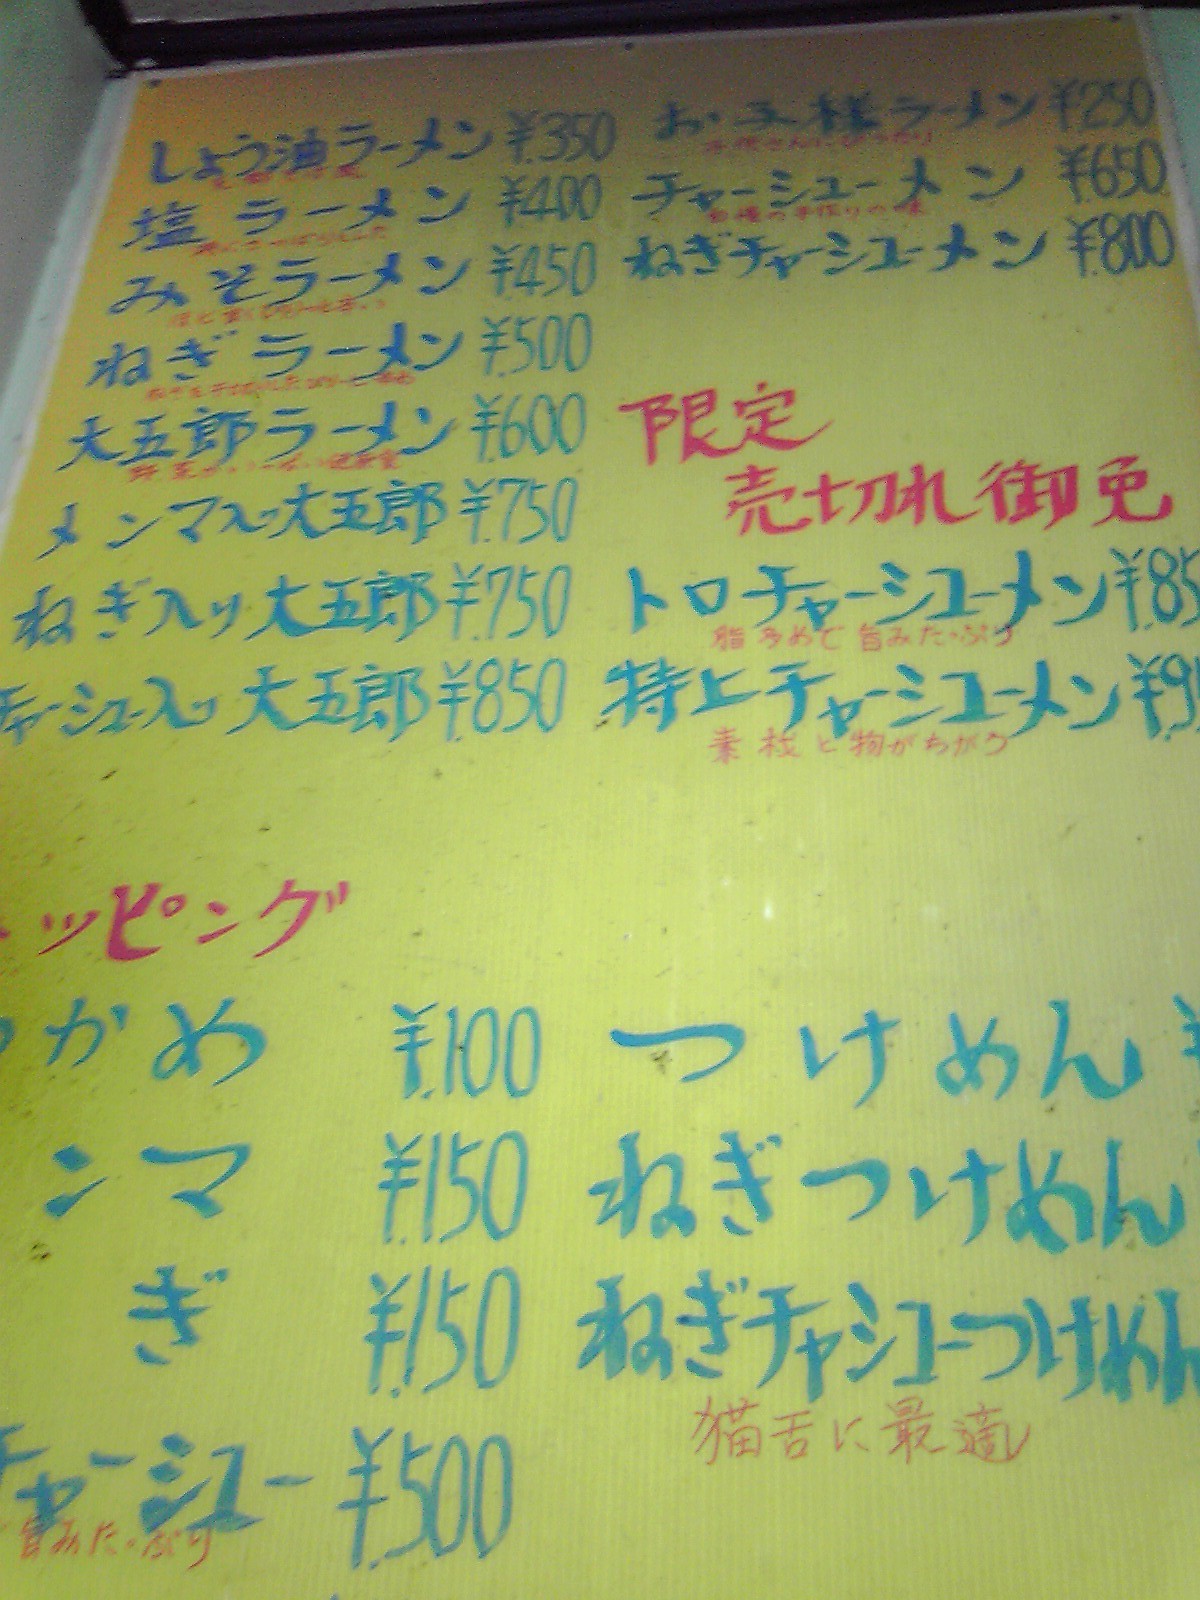 しょう油ラーメン ¥350
塩ラーメン ¥400
みそラーメン ¥450
ねぎラーメン ¥500
大五郎ラーメン ¥600
メンマ入り大五郎 ¥750
ねぎ入り大五郎 ¥750
チャーシュー入り大五郎 ¥850
お子様ラーメン ¥250
チャーシューメン ¥650
自慢の手作りの味
ねぎチャーシューメン ¥800
限定
売切れ御免
トロチャーシューメン ¥85
脂多めで旨みたっぷり
特上チャーシューメン ¥9
素材と物がちがう
ッピング
かめ ¥100
ンマ ¥150
ぎ ¥150
チャーシュー ¥500
旨みたっぷり
つけめん ¥
ねぎつけめん
ねぎチャシューつけめん
猫舌に最適